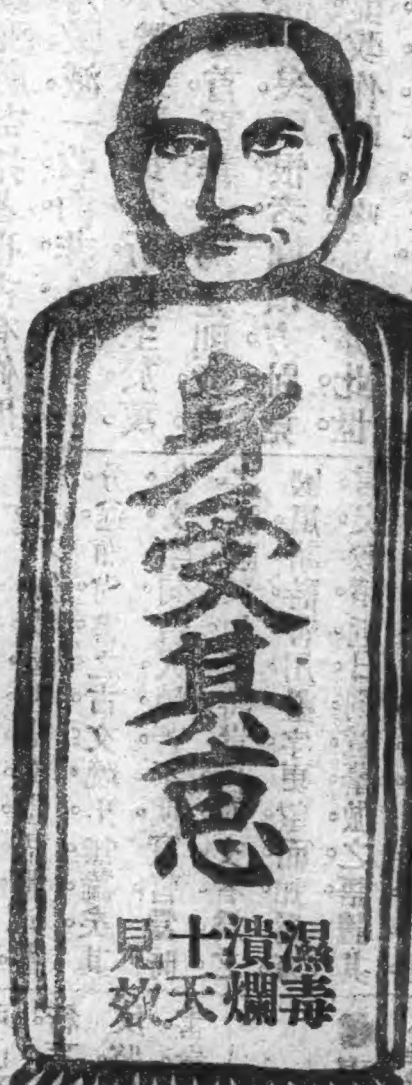 身受其恵
濕毒
潰爛
十天
見效